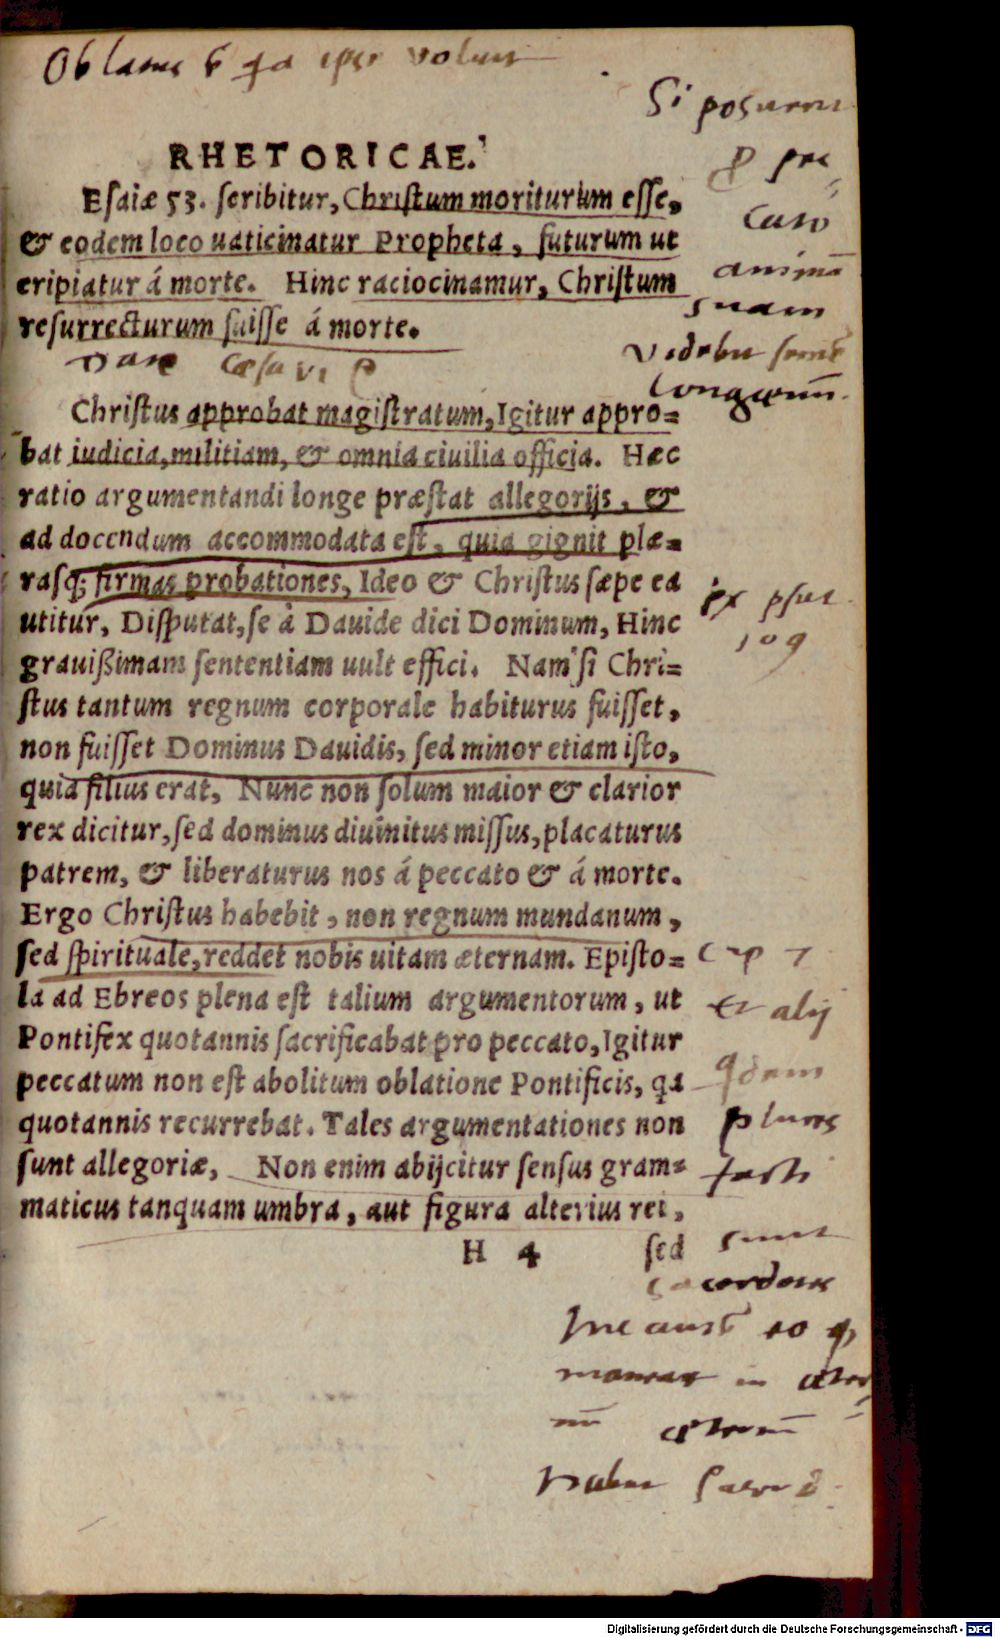 Oblatus ē qa ipse voluit
RHETORICAE.
Esaiæ 53. scribitur, Christum moriturum esse,
& eodem loco uaticinatur Propheta, futurum ut
eripiatur á morte. Hinc raciocinamur, Christum
resurrecturum fuisse á morte.
Date Cæsari
Christus approbat magistratum, Igitur appro=
bat iudicia, militiam, & omnia ciuilia officia. Hæc
ratio argumentandi longe præstat allegorijs, &
ad docendum accommodata est, quia gignit plæ=
rasq; firmas probationes, Ideo & Christus sæpe ea
utitur, Disputat, se à Dauide dici Dominum, Hinc
grauißimam sententiam uult effici. Nam si Chri=
stus tantum regnum corporale habiturus fuisset,
non fuisset Dominus Dauidis, sed minor etiam isto,
quia filius erat, Nunc non solum maior & clarior
rex dicitur, sed dominus diuinitus missus, placaturus
patrem, & liberaturus nos á peccato & á morte.
Ergo Christus habebit, non regnum mundanum,
sed spirituale, reddet nobis uitam æternam. Episto=
la ad Ebreos plena est talium argumentorum, ut
Pontifex quotannis sacrificabat pro peccato, Igitur
peccatum non est abolitum oblatione Pontificis, qa
quotannis recurrebat. Tales argumentationes non
sunt allegoriæ, Non enim abijcitur sensus gram=
maticus tanquam umbra, aut figura alterius rei,
H 4 sed
Si posuerit
p pec
cato
animā
suam
videbit semē
longævum.
ex psal.
109
Cap 7
Et alij
qdem
plures
facti
sunt
sacerdotes
eo q
maneat in æter
nū æternū
habet sacerd.
Digitalisierung gefördert durch die Deutsche Forschungsgemeinschaft - DFG